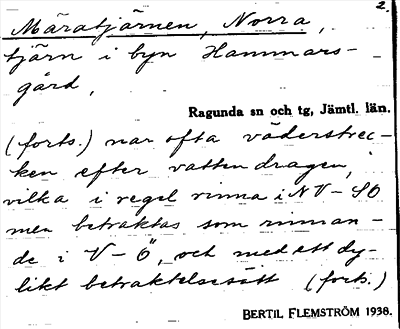 2.
Märatjärnen, Norra,
tjärn i byn Hammars-
gård,
Ragunda sn och tg, Jämtl. län.
(forts.) nar ofta väderstrec-
ken efter vattendragen,
vilka i regel rinna i NV-SO
men betraktas som rinnan-
de i V-Ö, och med ett dy-
likt betraktelsesätt (forts.)
BERTIL FLEMSTRÖM 1938.